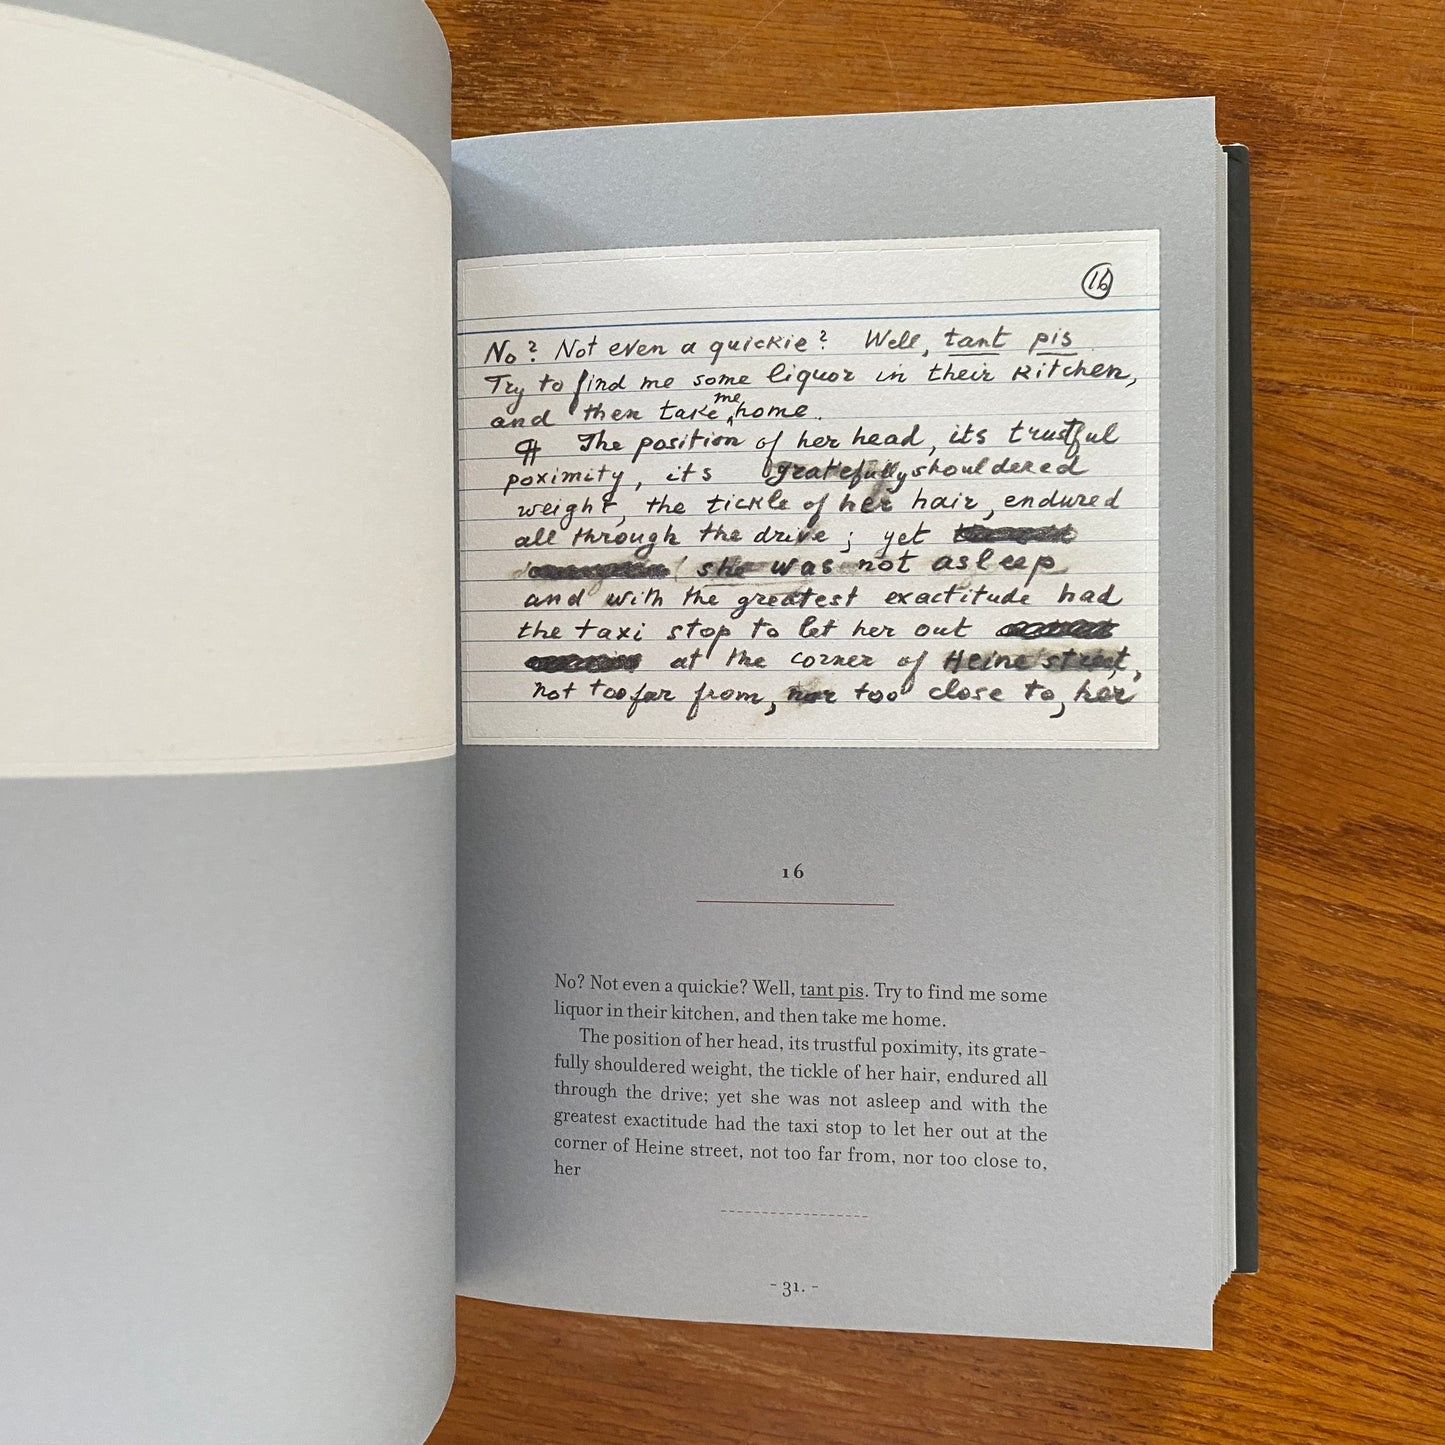 16
No? Not even a quickie? Well, tant pis.
Try to find me some liquor in their kitchen,
and then take me home.
¶ The position of her head, its trustful
poximity, its gratefully shouldered
weight, the tickle of her hair, endured
all through the drive; yet
she was not asleep
and with the greatest exactitude had
the taxi stop to let her out
at the corner of Heine street,
not too far from, nor too close to, her
16
No? Not even a quickie? Well, tant pis. Try to find me some
liquor in their kitchen, and then take me home.
The position of her head, its trustful poximity, its grate-
fully shouldered weight, the tickle of her hair, endured all
through the drive; yet she was not asleep and with the
greatest exactitude had the taxi stop to let her out at the
corner of Heine street, not too far from, nor too close to,
her
- 31. -